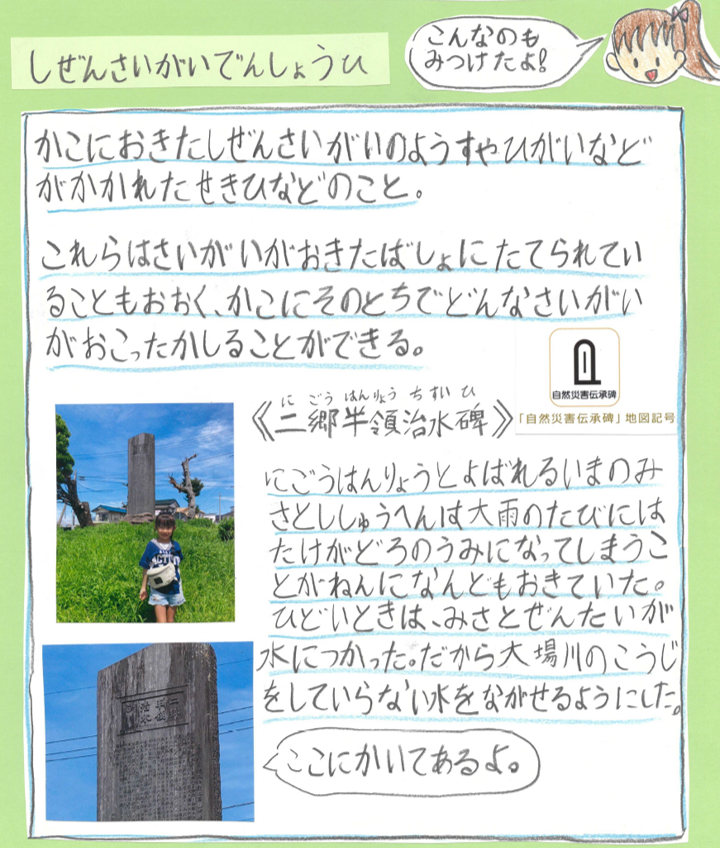 しぜんさいがいでんしょうひ
こんなのも
みつけたよ!
かこにおきたしぜんさいがいのようすやひがいなど
がかかれたせきひなどのこと。
これらはさいがいがおきたばしょにたてられてい
ることもおおく、かこにそのとちでどんなさいがい
がおこったかしることができる。
自然災害伝承碑
「自然災害伝承碑」地図記号
にごうはんりょうちすいひ
《二郷半領治水碑》
にごうはんりょうとよばれるいまのみ
さとししゅうへんは大雨のたびには
たけがどろのうみになってしまうこ
とがねんになんどもおきていた。
ひどいときは、みさとぜんたいが
水につかった。だから大場川のこうじ
をしていらない水をながせるようにした。
ここにかいてあるよ。